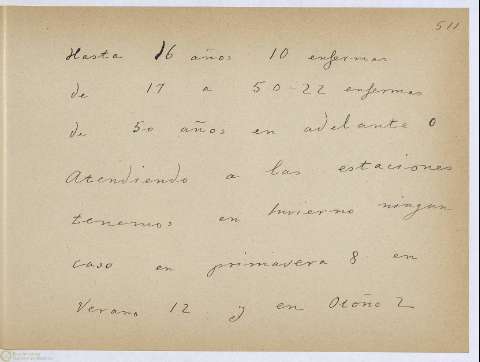 511
Hasta 16 años 10 enfermas
de 17 a 50-22 enfermas
de 50 años en adelante 0
Atendiendo a las estaciones
tenemos en Invierno ningun
caso en primavera 8 en
Verano 12 y en Otoño 2